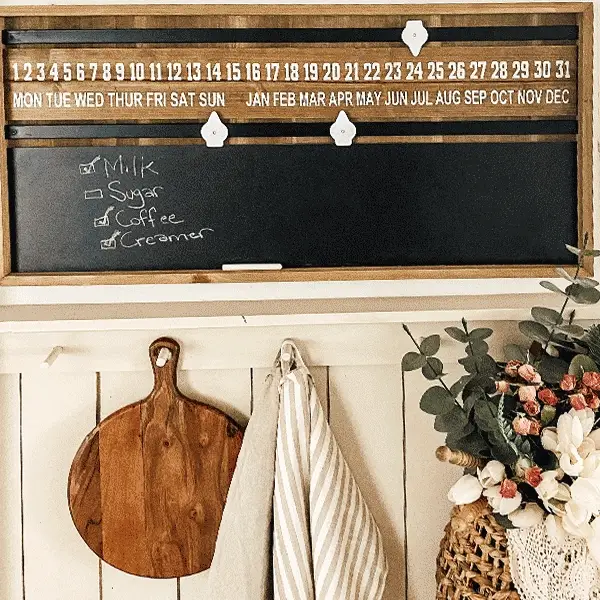 1 2 3 4 5 6 7 8 9 10 11 12 13 14 15 16 17 18 19 20 21 22 23 24 25 26 27 28 29 30 31
MON TUE WED THUR FRI SAT SUN JAN FEB MAR APR MAY JUN JUL AUG SEP OCT NOV DEC
Milk
Sugar
Coffee
Creamer